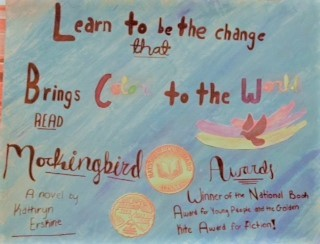 Learn to be the change
that
Brings Color to the World
READ
Mockingbird
Awards
A novel by
Kathryn
Erskine
Winner of the National Book
Award for Young People and the Golden
Kite Award for Fiction!